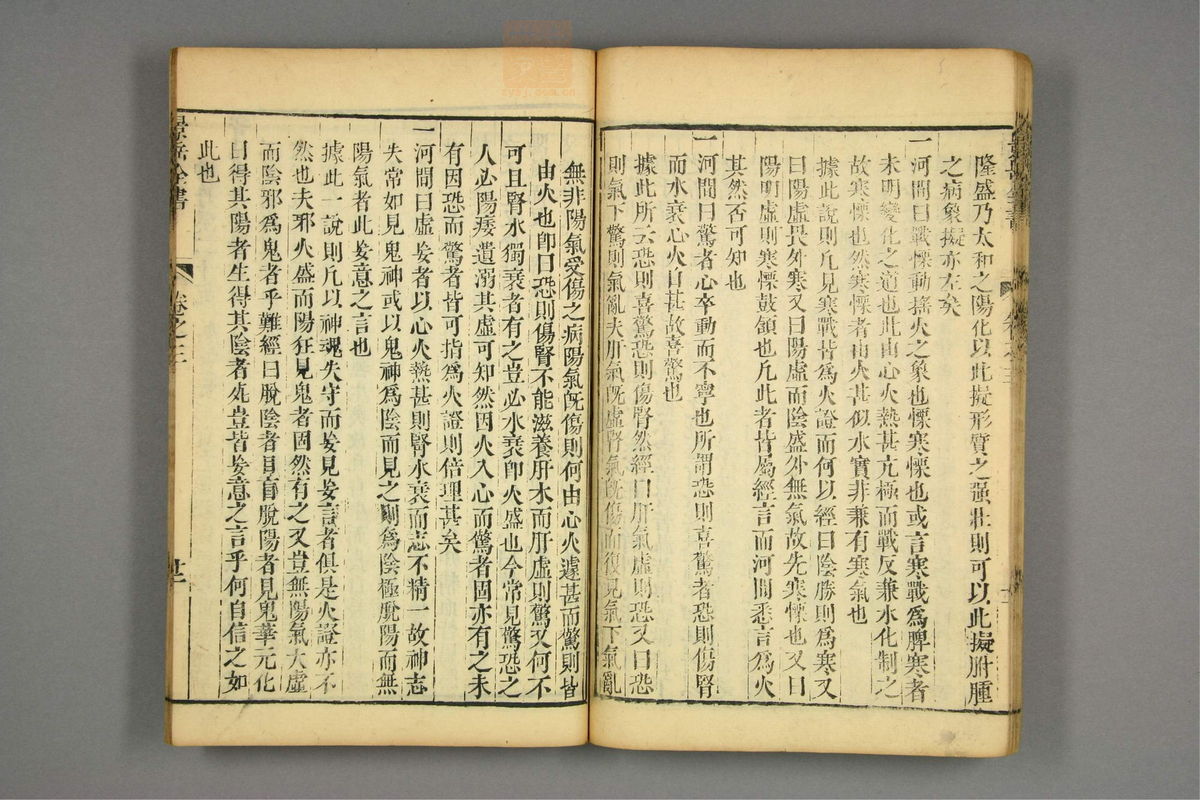 隆盛乃太和之陽化以此擬形質之强壯則可以此擬胕腫
之病象擬亦左矣
一河間曰戰慄動搖火之象也慄寒慄也或言寒戰爲脾寒者
未明變化之道也此由心火熱甚亢極而戰反兼水化制之
故寒慄也然寒慄者由火甚似水實非兼有寒氣也
據此說則凡見寒戰皆爲火證而何以經曰陰勝則爲寒又
曰陽虛畏外寒又曰陽虛而陰盛外無氣故先寒慄也又曰
陽明虛則寒慄鼓頷也凡此者皆屬經言而河間悉言爲火
其然否可知也
一河間曰驚者心卒動而不寧也所謂恐則喜驚者恐則傷腎
而水衰心火自甚故喜驚也
據此所云恐則喜驚恐則傷腎然經曰肝氣虛則恐又曰恐
則氣下驚則氣亂夫肝氣旣虛腎氣旣傷而復見氣下氣亂
無非陽氣受傷之病陽氣旣傷則何由心火遽甚而驚則皆
由火也卽曰恐則傷腎不能滋養肝木而肝虛則驚又何不
可且腎水獨衰者有之豈必水衰卽火盛也今常見驚恐之
人必陽痿遺溺其虛可知然因火入心而驚者固亦有之未
有因恐而驚者皆可指爲火證則倍理甚矣
一河間曰虛妄者以心火熱甚則腎水衰而志不精一故神志
失常如見鬼神或以鬼神爲陰而見之則爲陰極脫陽而無
陽氣者此妄意之言也
據此一說則凡以神魂失守而妄見妄言者俱是火證亦不
然也夫邪火盛而陽狂見鬼者固然有之又豈無陽氣大虛
而陰邪爲鬼者乎難經曰脫陰者目盲脫陽者見鬼華元化
曰得其陽者生得其陰者死豈皆妄意之言乎何自信之如
此也
景岳全書
卷之三
廿二